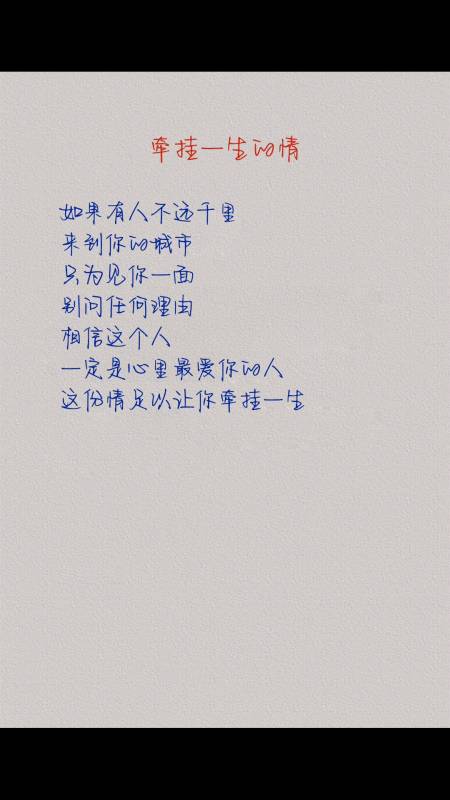 牵挂一生的情
如果有人不远千里
来到你的城市
只为见你一面
别问任何理由
相信这个人
一定是心里最爱你的人
这份情足以让你牵挂一生